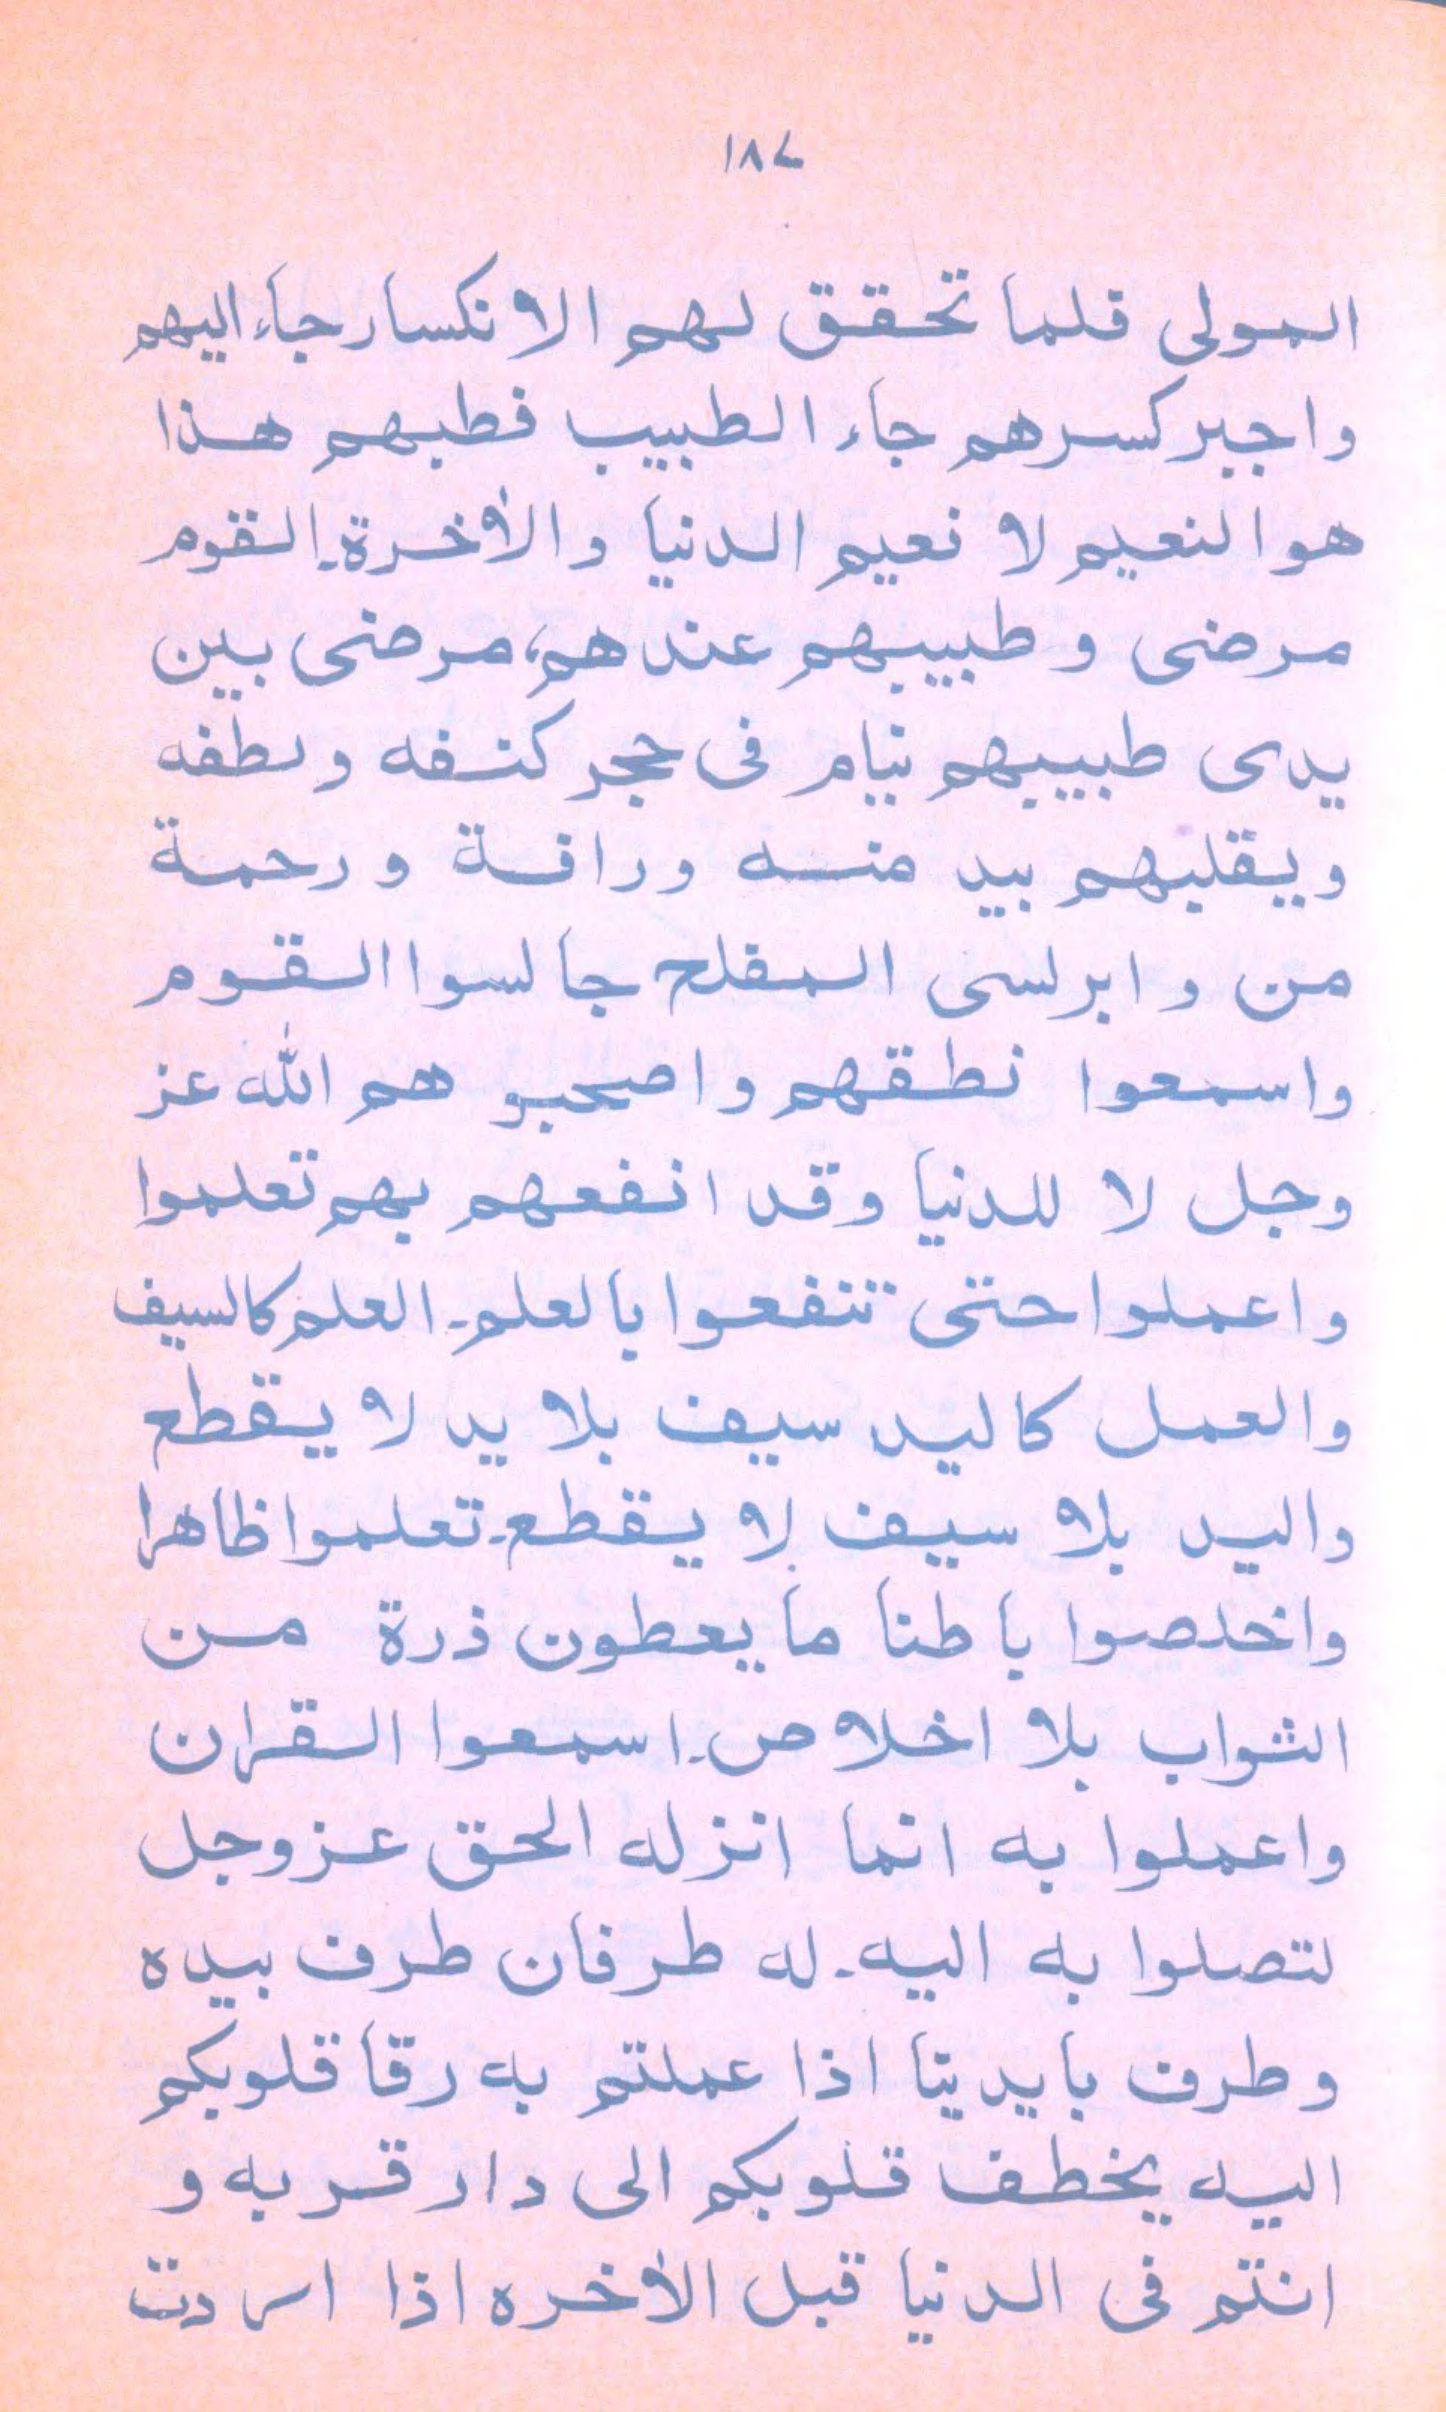 ١٨٧
المولى قلما تحقق لهم الانكسار جاء اليهم
واجبر كسرهم جاء الطبيب فطبهم هذا
هو النعيم لا نعيم الدنيا والأخرة۔ القوم
مرضى وطبيبهم عندهم، مرضى بين
يدى طبيبهم نيام فى حجر كنفه ولطفه
ويقلبهم بيد منه ورافة ورحمة
من و ابرلسى المفلح جالسوا القوم
واسمعوا نطقهم واصحبو هم الله عز
وجل لا للدنيا وقد انفعهم بهم تعلموا
واعملوا حتى تنفعوا بالعلم۔ العلم كالسيف
والعمل كاليد سيف بلا يد لا يقطع
واليد بلا سيف لا يقطع۔ تعلموا ظاهرا
واخلصوا باطنا ما يعطون ذرة من
الثواب بلا اخلاص۔ اسمعوا القران
واعملوا به انما انزله الحق عزوجل
لتصلوا به اليه۔ له طرفان طرف بيده
وطرف بايدينا اذا عملتم به رقا قلوبكم
اليه يخطف قلوبكم الى دار قربه و
انتم فى الدنيا قبل الأخره اذا اردت